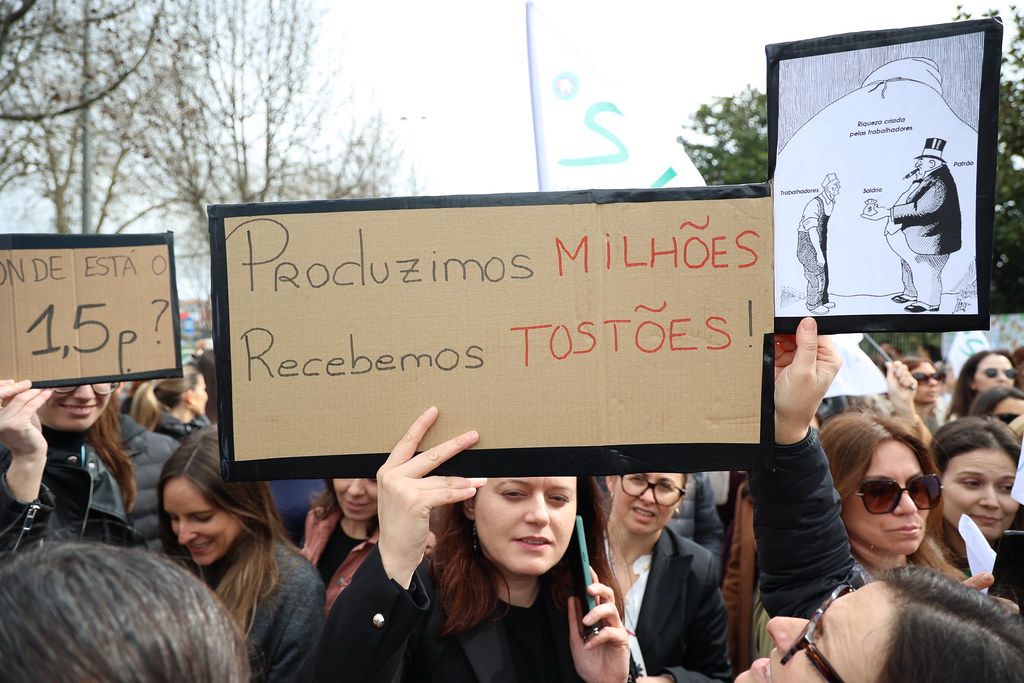 ONDE ESTÁ O
1,5 p.?
Produzimos MILHÕES
Recebemos TOSTÕES!
Riqueza criada
pelos trabalhadores
Patrão
Trabalhadores
Salário